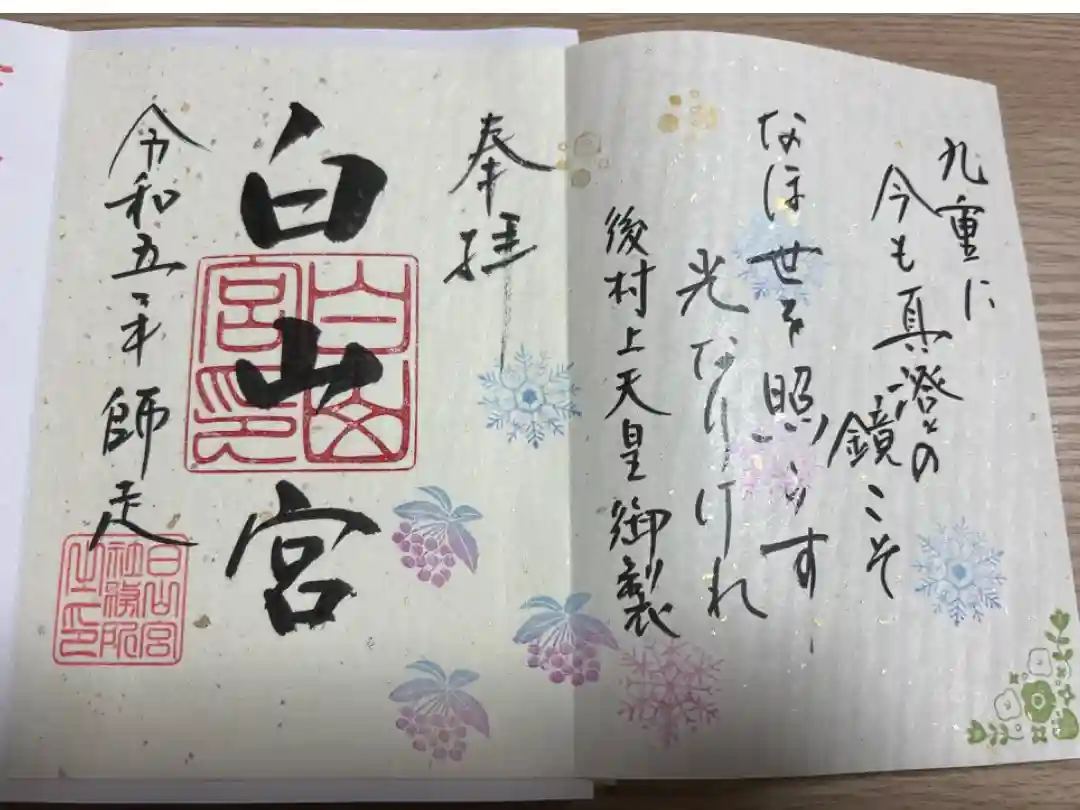 九重に
今も真澄の
鏡こそ
なほ世を照らす
光なりけれ
後村上天皇御製
奉拝
白山宮
白山宮印
令和五年師走
白山宮
社務所
之印